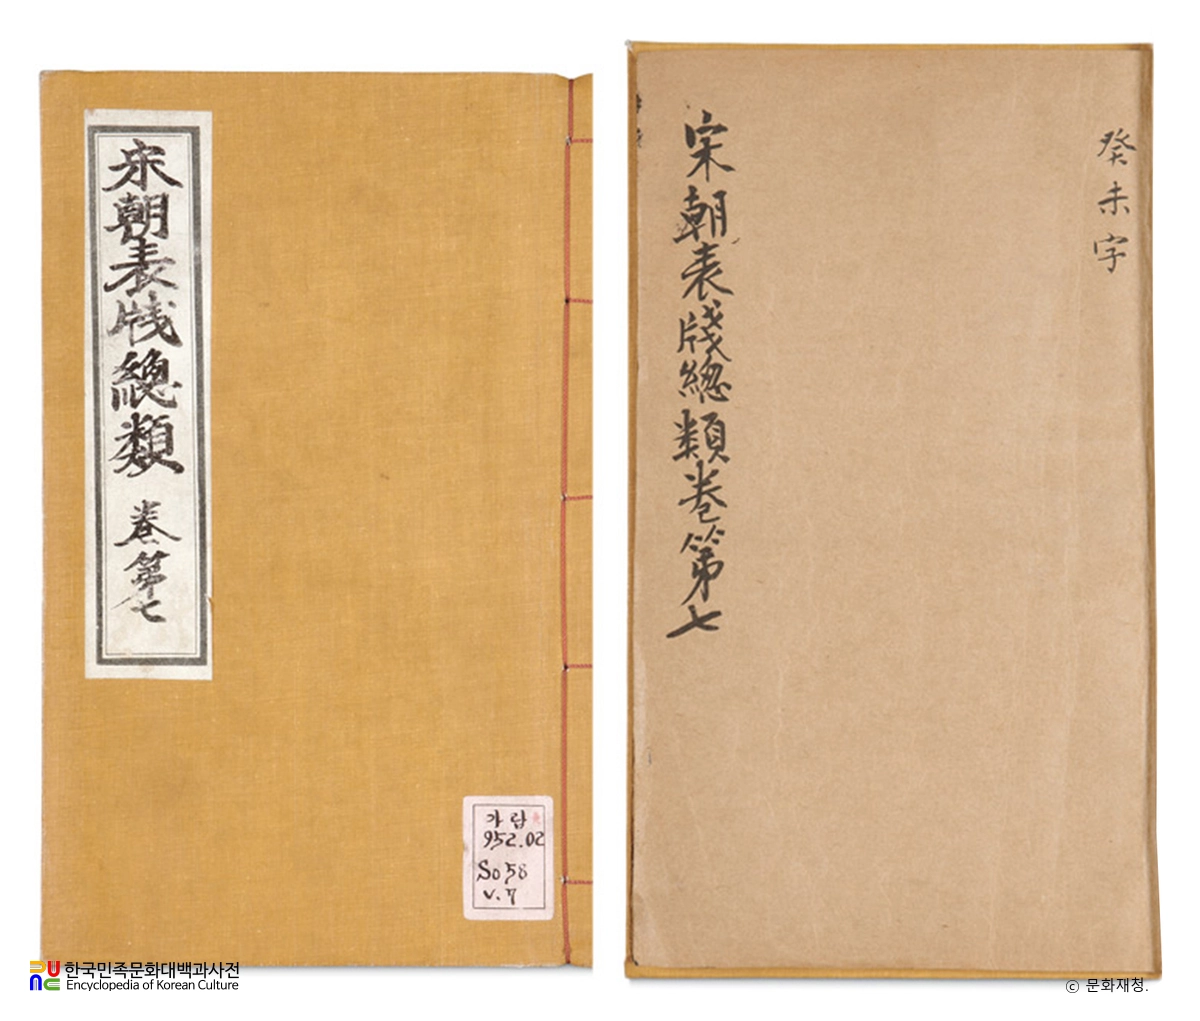 宋朝表牋緫類 卷第七
가람
952.02
So58
v.7
癸未字
宋朝表牋緫類卷第七
한국민족문화대백과사전
Encyclopedia of Korean Culture
ⓒ 문화재청.